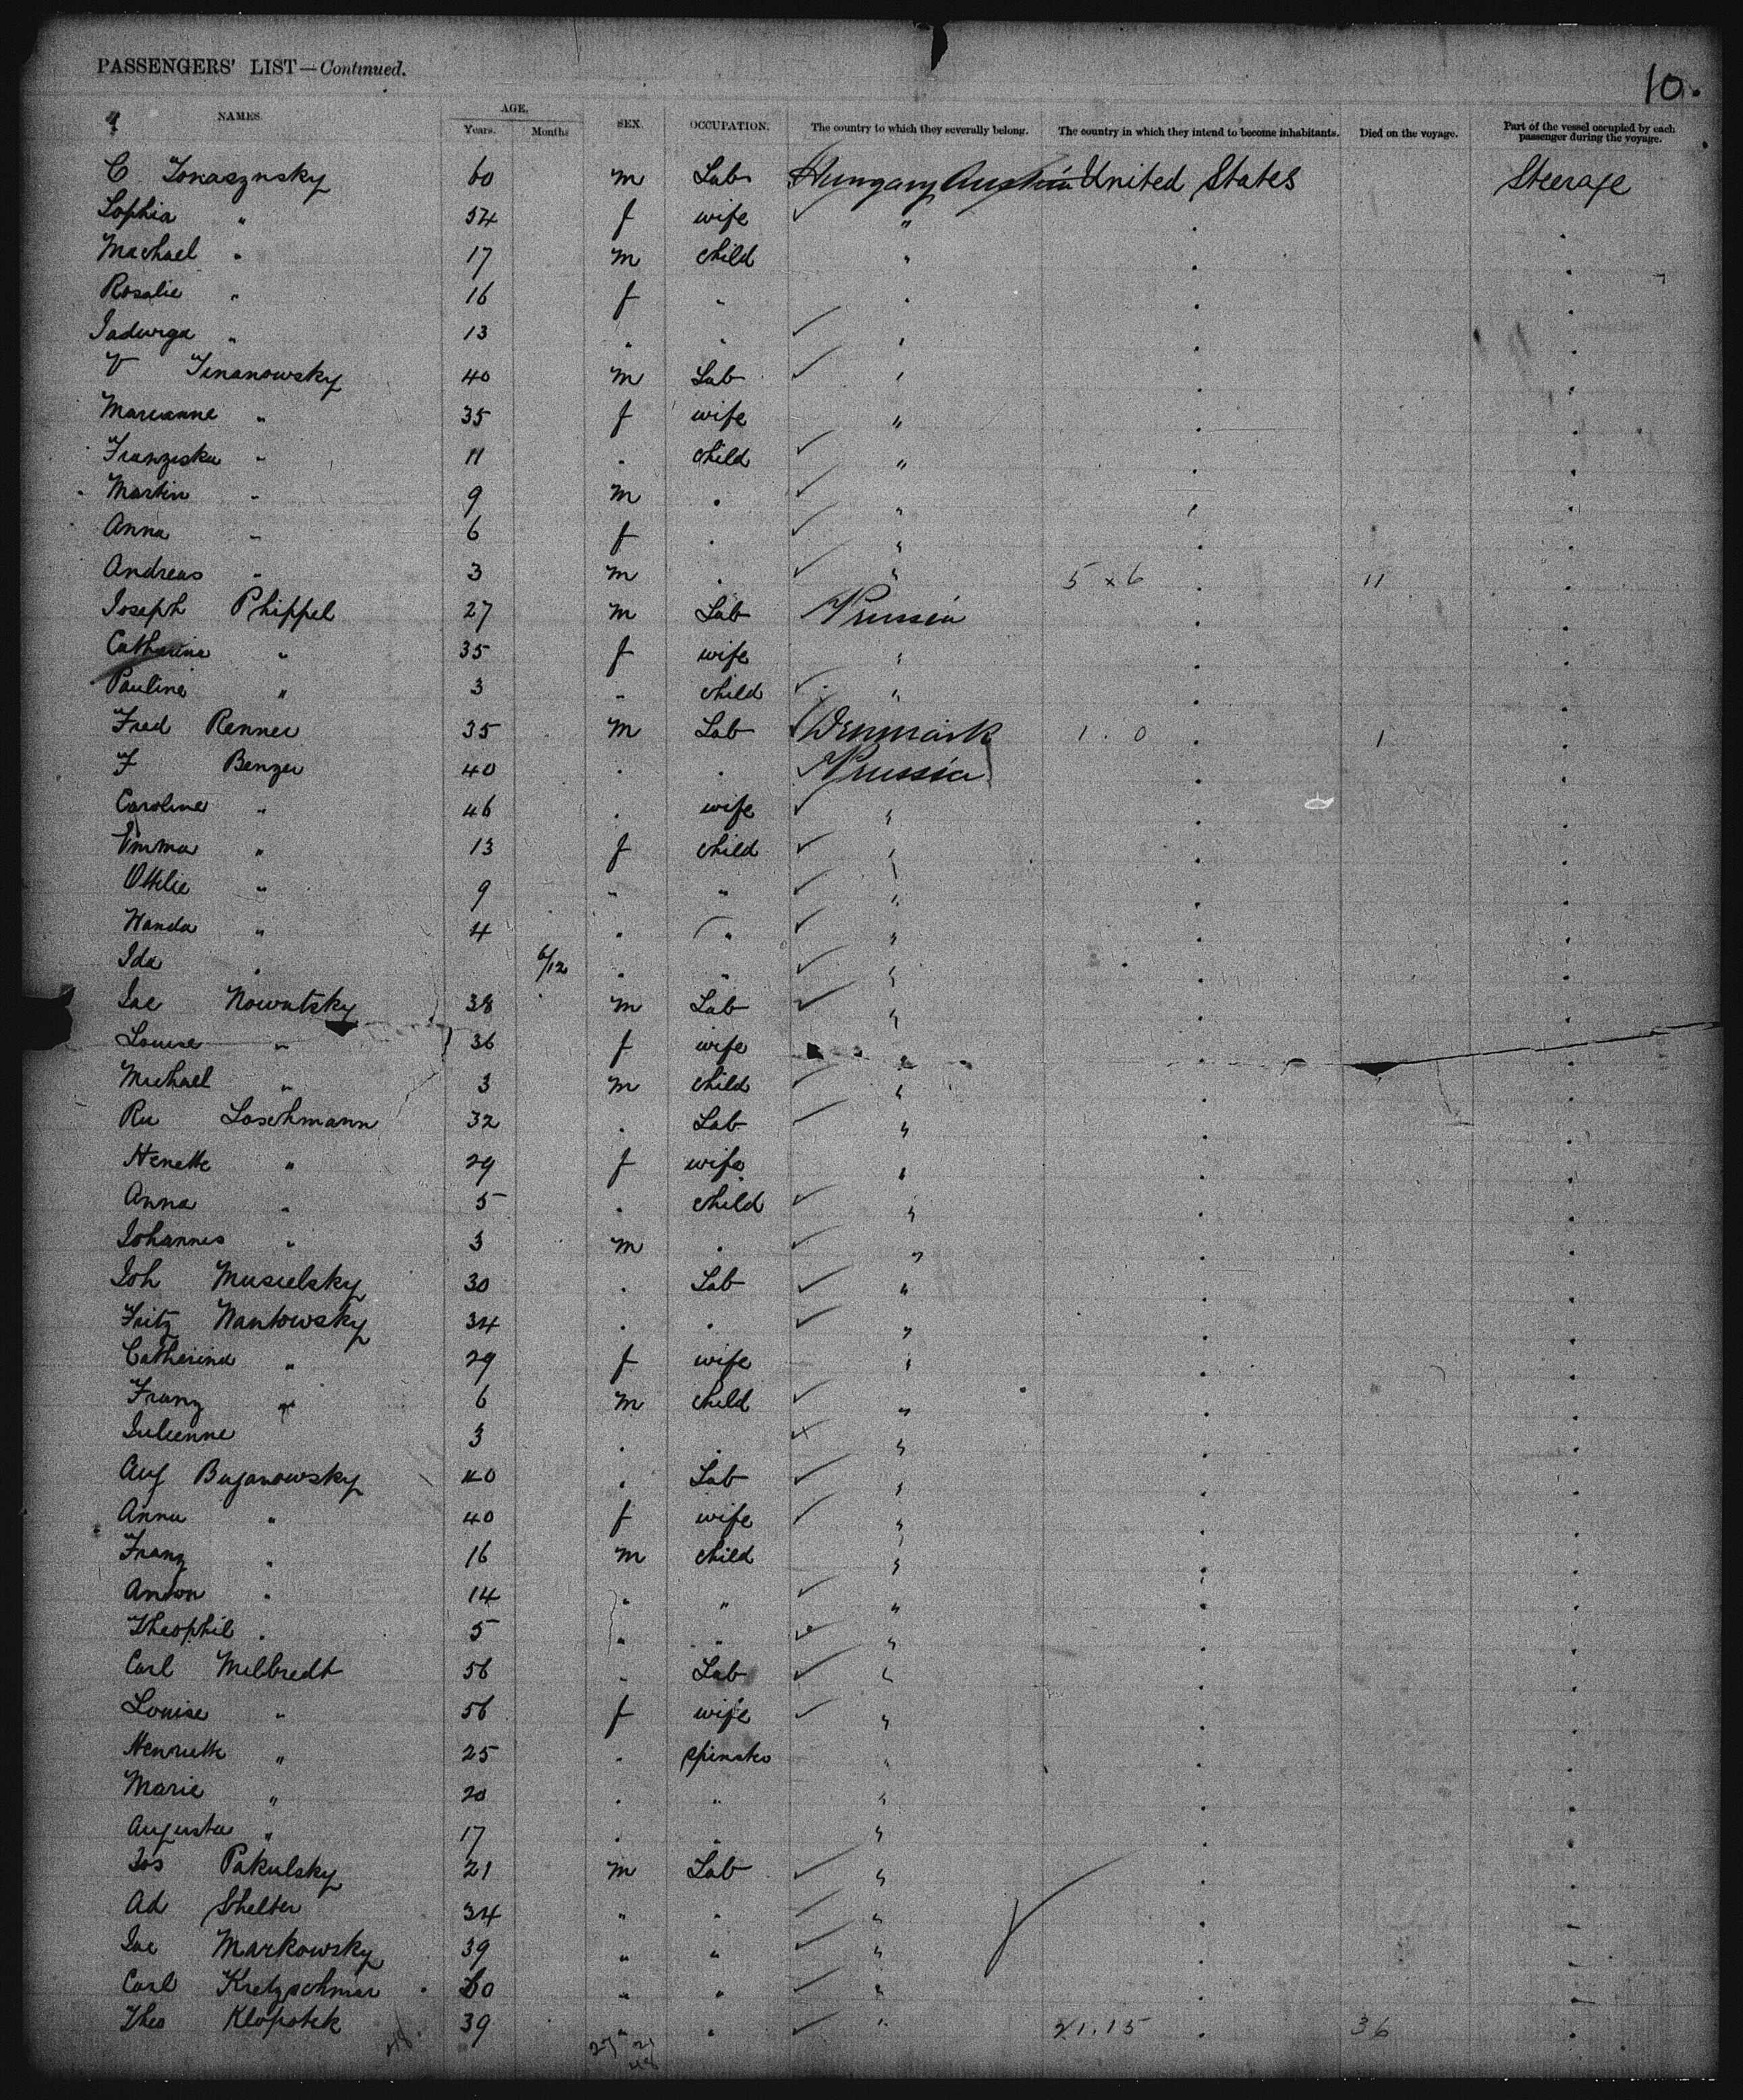 PASSENGERS' LIST—Continued.
10.
NAMES. AGE. Years. Months SEX. OCCUPATION. The country to which they severally belong. The country in which they intend to become inhabitants. Died on the voyage. Part of the vessel occupied by each passenger during the voyage.
C 60 m Lab Hungary Austria United States Steerage
Sophia " 54 f wife "
Machael " 17 m child "
Rosalie " 16 f " "
Jadwiga " 13 " " "
V 40 m Lab "
Marianne " 35 f wife "
Franziska " 11 " child "
Martin " 9 m " "
Anna " 6 f " "
Andreas " 3 m " " 5 x 6 11
Joseph Phippel 27 m Lab Prussia
Catharina " 35 f wife "
Pauline " 3 " child "
Fred Renner 35 m Lab Denmark 1 . 0 1
F Benzer 40 " " Prussia
Caroline " 46 " wife "
Emma " 13 f child "
Ottilie " 9 " " "
Wanda " 4 " " "
Ida " 6/12 " " "
Jac Nowatsky 38 m Lab "
Louise " 36 f wife "
Michael " 3 m child "
Ru Loschmann 32 " Lab "
Henette " 29 f wife "
Anna " 5 " child "
Johannes " 3 m " "
Joh Musielsky 30 " Lab "
Fritz Nantowsky 34 " " "
Catherina " 29 f wife "
Franz " 6 m child "
Julienne 3 " " "
Aug Buganowsky 40 " Lab "
Anna " 40 f wife "
Franz " 16 m child "
Anton " 14 " " "
Theophil " 5 " " "
Carl Melbredt 56 " Lab "
Louise " 56 f wife "
Henriette " 25 " spinster "
Marie " 20 " " "
Augusta " 17 " " "
Jos Pakulsky 21 m Lab "
Ad Shelter 34 " " "
Jac Markowsky 39 " " "
Carl Kretzschmar 60 " " "
Theo Klopotek 39 " " " 21.15 36
48 27 21
48